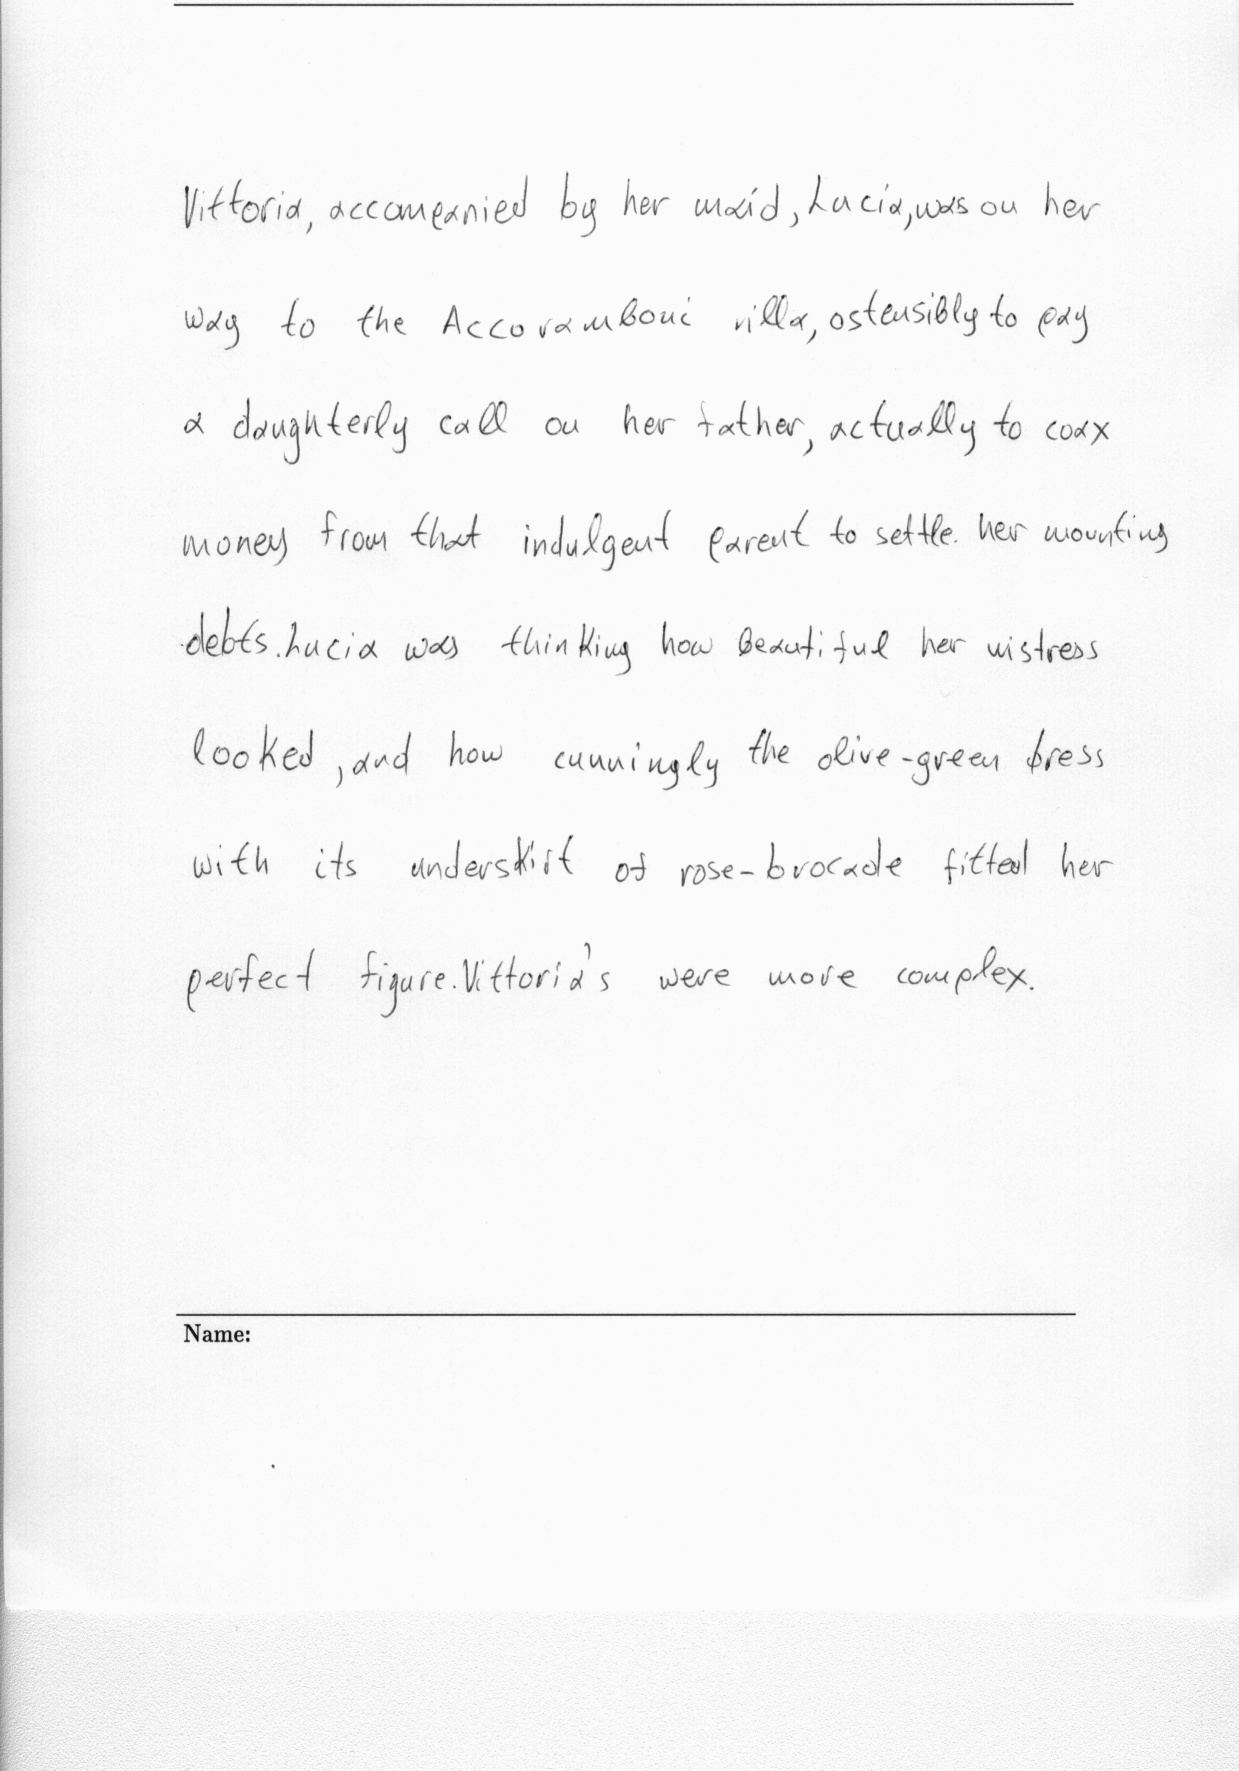 Vittoria, accompanied by her maid, Lucia, was on her
way to the Accoramboni villa, ostensibly to pay
a daughterly call on her father, actually to coax
money from that indulgent parent to settle her mounting
debts. Lucia was thinking how beautiful her mistress
looked, and how cunningly the olive-green dress
with its underskirt of rose-brocade fitted her
perfect figure. Vittoria's were more complex.
Name: